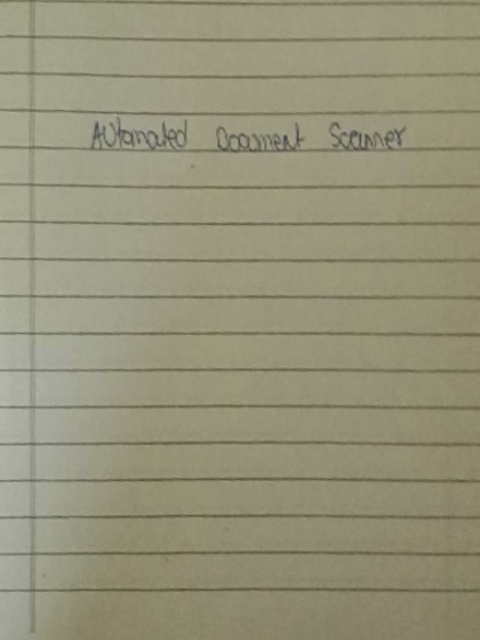 AUtomated Document Scanner